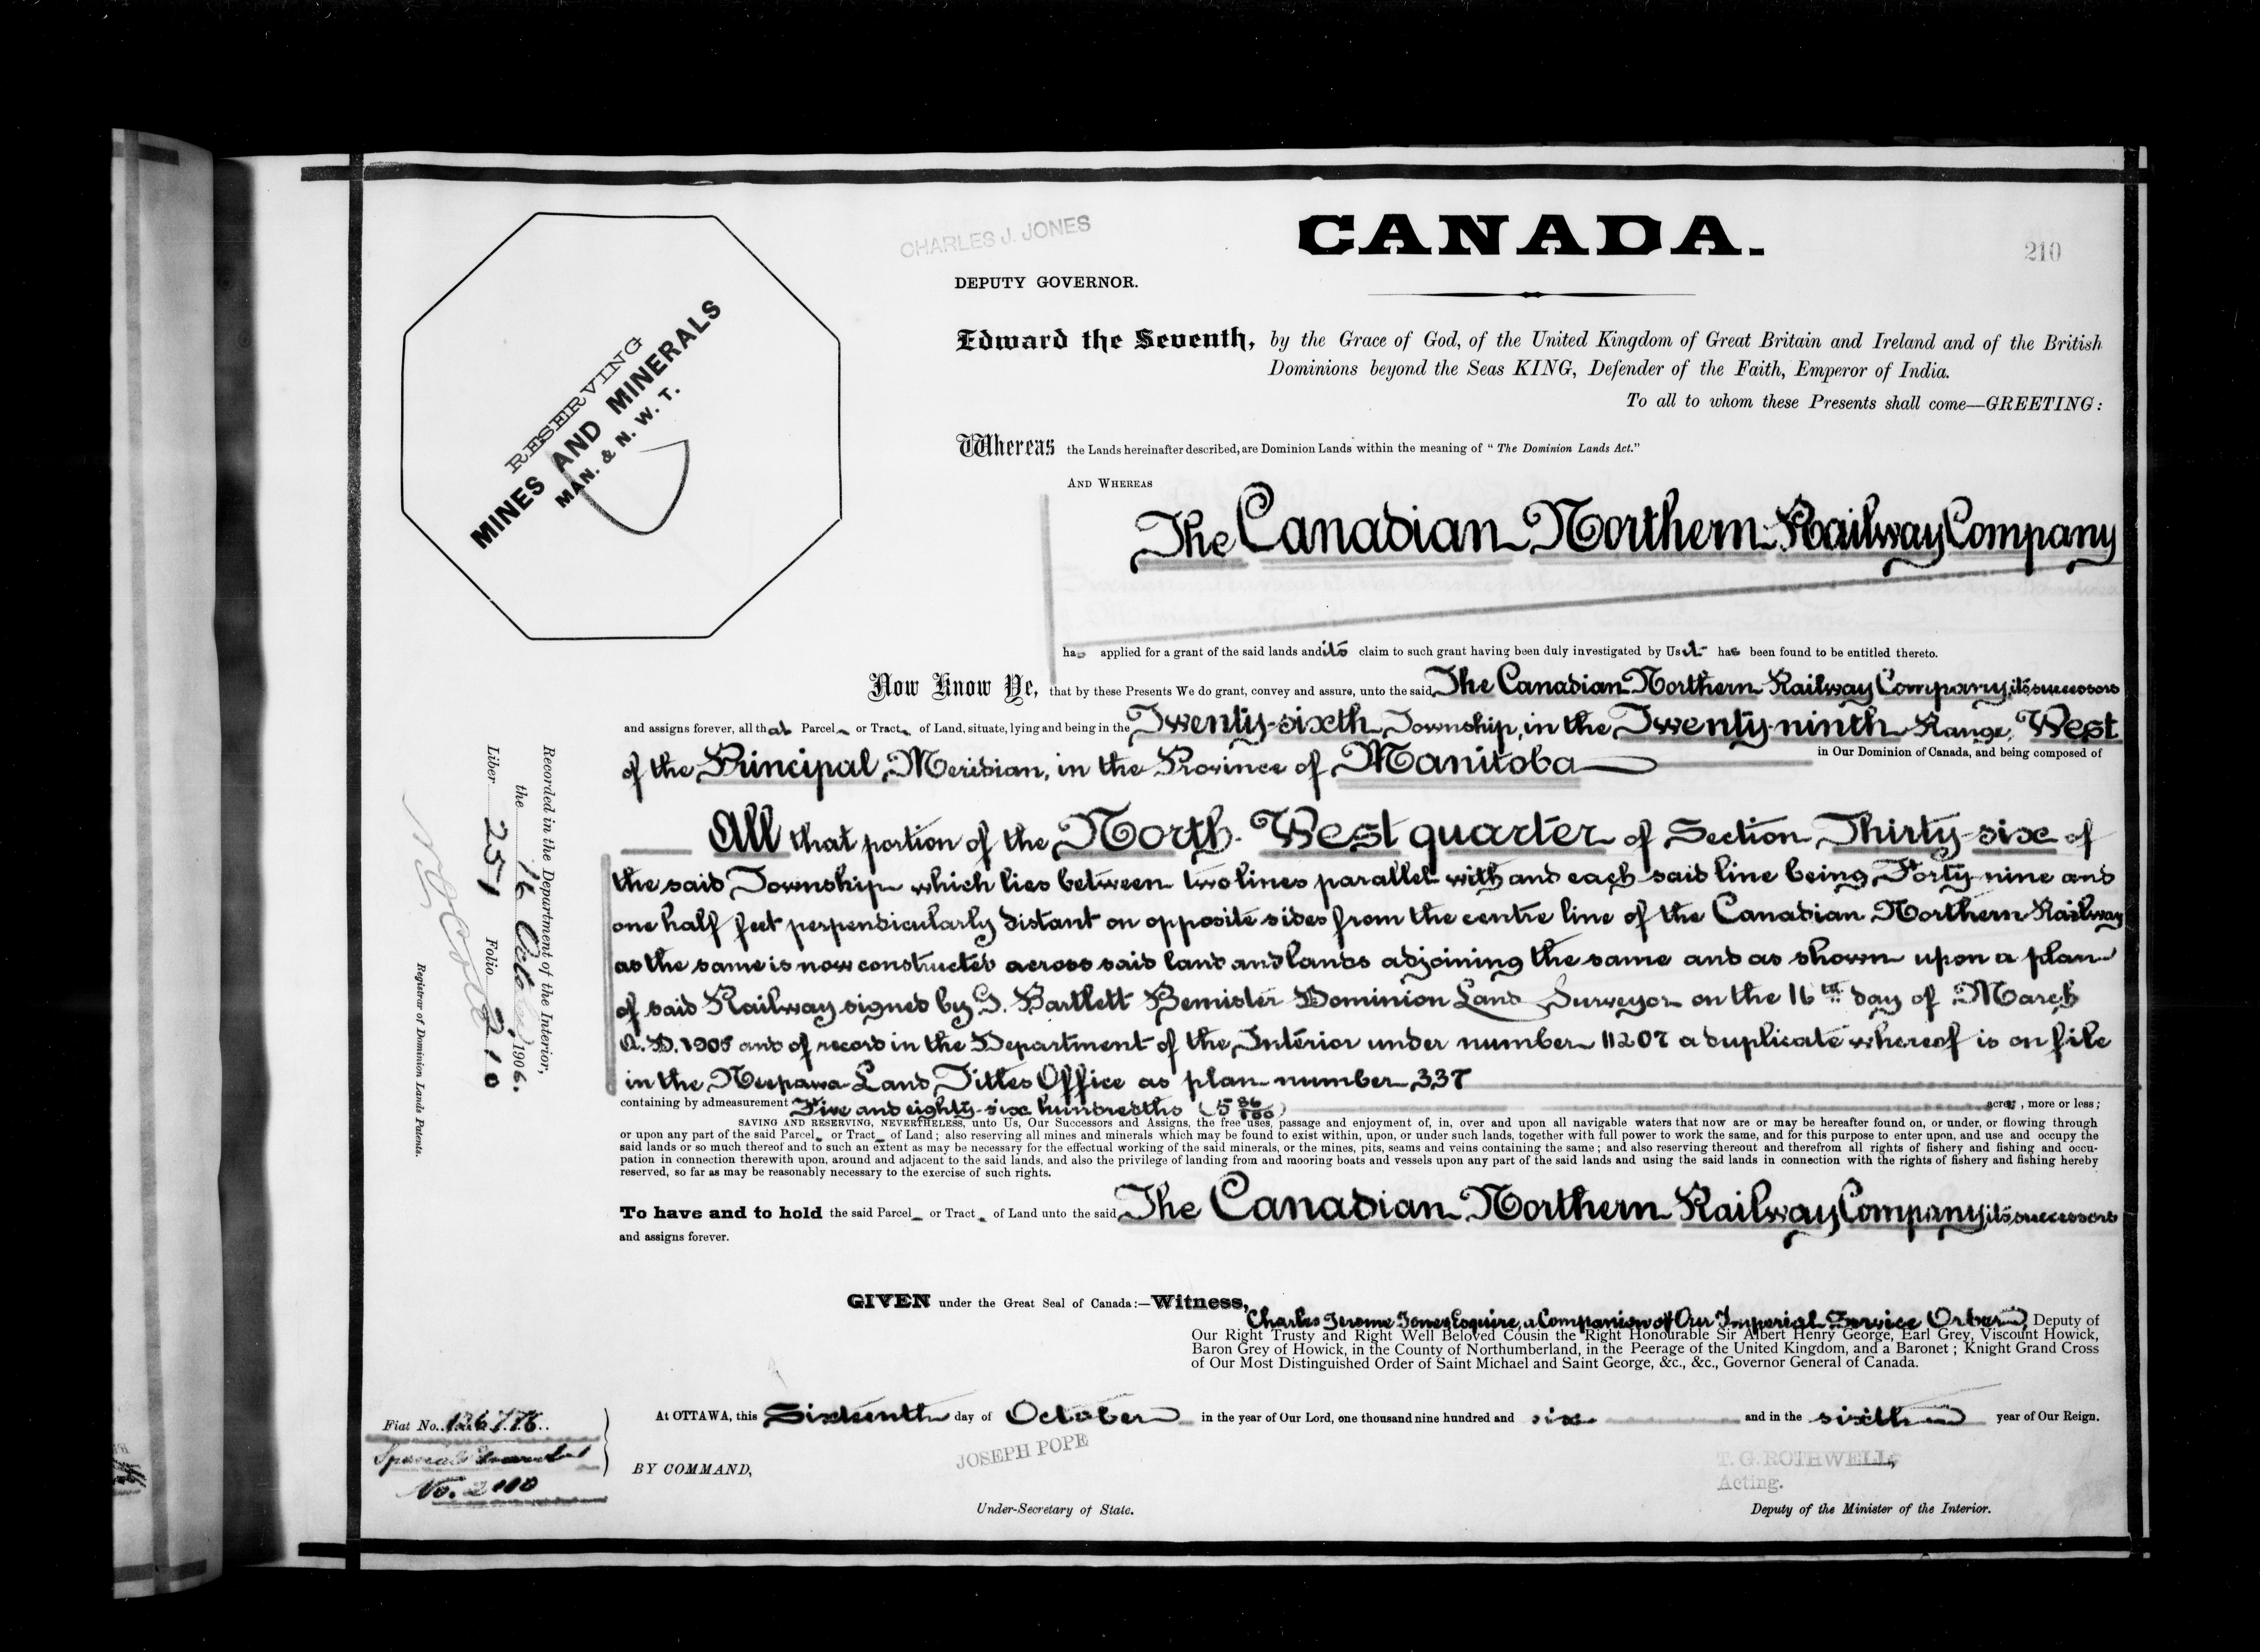 CHARLES J. JONES
CANADA.
210
DEPUTY GOVERNOR.
RESERVING
MINES AND MINERALS
MAN. & N. W. T.
Edward the Seventh, by the Grace of God, of the United Kingdom of Great Britain and Ireland and of the British
Dominions beyond the Seas KING, Defender of the Faith, Emperor of India.
To all to whom these Presents shall come—GREETING:
Whereas the Lands hereinafter described, are Dominion Lands within the meaning of "The Dominion Lands Act."
AND WHEREAS
The Canadian Northern Railway Company
has applied for a grant of the said lands and its claim to such grant having been duly investigated by Us it has been found to be entitled thereto.
Now Know Ye, that by these Presents We do grant, convey and assure, unto the said The Canadian Northern Railway Company, its successors
and assigns forever, all that Parcel or Tract of Land, situate, lying and being in the Twenty-sixth Township, in the Twenty-ninth Range, West
of the Principal Meridian, in the Province of Manitoba in Our Dominion of Canada, and being composed of
All that portion of the North West quarter of Section Thirty-six of
the said Township which lies between two lines parallel with and each said line being Forty-nine and
one half feet perpendicularly distant on opposite sides from the centre line of the Canadian Northern Railway
as the same is now constructed across said land and lands adjoining the same and as shown upon a plan
of said Railway signed by G. Bartlett Bemister Dominion Land Surveyor on the 16th day of March
A.D. 1905 and of record in the Department of the Interior under number 11207 a duplicate whereof is on file
in the Neepawa Land Titles Office as plan number 337
containing by admeasurement Five and eighty-six hundredths (5 86/100) acres, more or less;
SAVING AND RESERVING, NEVERTHELESS, unto Us, Our Successors and Assigns, the free uses, passage and enjoyment of, in, over and upon all navigable waters that now are or may be hereafter found on, or under, or flowing through
or upon any part of the said Parcel or Tract of Land; also reserving all mines and minerals which may be found to exist within, upon, or under such lands, together with full power to work the same, and for this purpose to enter upon, and use and occupy the
said lands or so much thereof and to such an extent as may be necessary for the effectual working of the said minerals, or the mines, pits, seams and veins containing the same; and also reserving thereout and therefrom all rights of fishery and fishing and occu-
pation in connection therewith upon, around and adjacent to the said lands, and also the privilege of landing from and mooring boats and vessels upon any part of the said lands and using the said lands in connection with the rights of fishery and fishing hereby
reserved, so far as may be reasonably necessary to the exercise of such rights.
To have and to hold the said Parcel or Tract of Land unto the said The Canadian Northern Railway Company, its successors
and assigns forever.
GIVEN under the Great Seal of Canada:—Witness,
Charles Jerome Jones Esquire, a Companion of Our Imperial Service Order, Deputy of
Our Right Trusty and Right Well Beloved Cousin the Right Honourable Sir Albert Henry George, Earl Grey, Viscount Howick,
Baron Grey of Howick, in the County of Northumberland, in the Peerage of the United Kingdom, and a Baronet; Knight Grand Cross
of Our Most Distinguished Order of Saint Michael and Saint George, &c., &c., Governor General of Canada.
At OTTAWA, this Sixteenth day of October in the year of Our Lord, one thousand nine hundred and six and in the sixth year of Our Reign.
BY COMMAND,
JOSEPH POPE
Under-Secretary of State.
T. G. ROTHWELL,
Acting.
Deputy of the Minister of the Interior.
Fiat No. 126776
Special
No. 2110
Recorded in the Department of the Interior,
the 16 Octo 1906.
Liber 251 Folio 210
Registrar of Dominion Lands Patents.